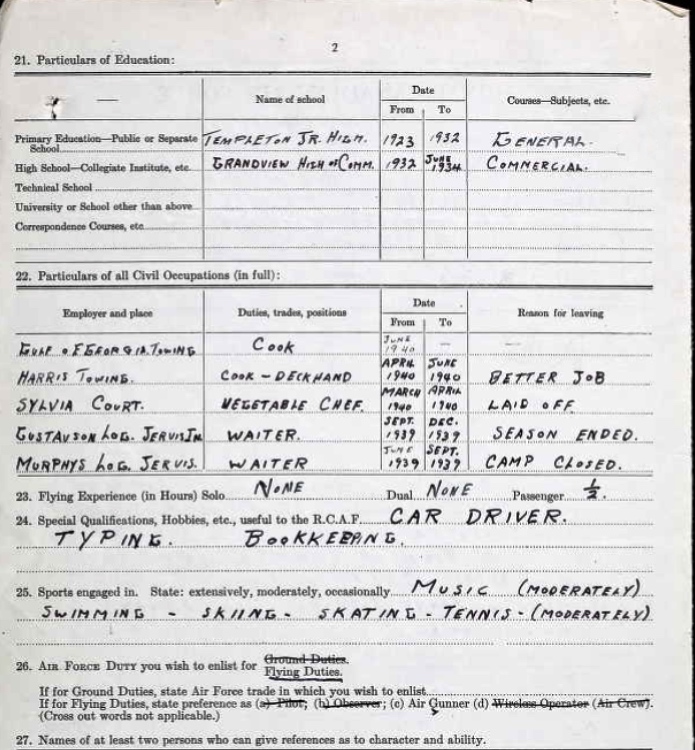 2
21. Particulars of Education:
Name of school Date Courses—Subjects, etc.
From To
Primary Education—Public or Separate School TEMPLETON JR. HIGH. 1923 1932 GENERAL.
High School—Collegiate Institute, etc. GRANDVIEW HIGH OF COMM. 1932 JUNE 1934 COMMERCIAL.
Technical School
University or School other than above
Correspondence Courses, etc.
22. Particulars of all Civil Occupations (in full):
Employer and place Duties, trades, positions Date Reason for leaving
From To
GULF OF GEORGIA TOWING COOK JUNE 1940 — —
HARRIS TOWING. COOK - DECKHAND APRIL 1940 JUNE 1940 BETTER JOB
SYLVIA COURT. VEGETABLE CHEF. MARCH 1940 APRIL 1940 LAID OFF
GUSTAVSON LOG. JERVIS IN. WAITER. SEPT. 1939 DEC. 1939 SEASON ENDED.
MURPHYS LOG. JERVIS. WAITER JUNE 1939 SEPT. 1939 CAMP CLOSED.
23. Flying Experience (in Hours) Solo NONE Dual NONE Passenger ½
24. Special Qualifications, Hobbies, etc., useful to the R.C.A.F. CAR DRIVER.
TYPING. BOOKKEEPING.
25. Sports engaged in. State: extensively, moderately, occasionally MUSIC (MODERATELY)
SWIMMING - SKIING - SKATING - TENNIS - (MODERATELY)
26. AIR FORCE DUTY you wish to enlist for Ground Duties.
Flying Duties.
If for Ground Duties, state Air Force trade in which you wish to enlist
If for Flying Duties, state preference as (a) Pilot; (b) Observer; (c) Air Gunner (d) Wireless Operator (Air Crew).
(Cross out words not applicable.)
27. Names of at least two persons who can give references as to character and ability.